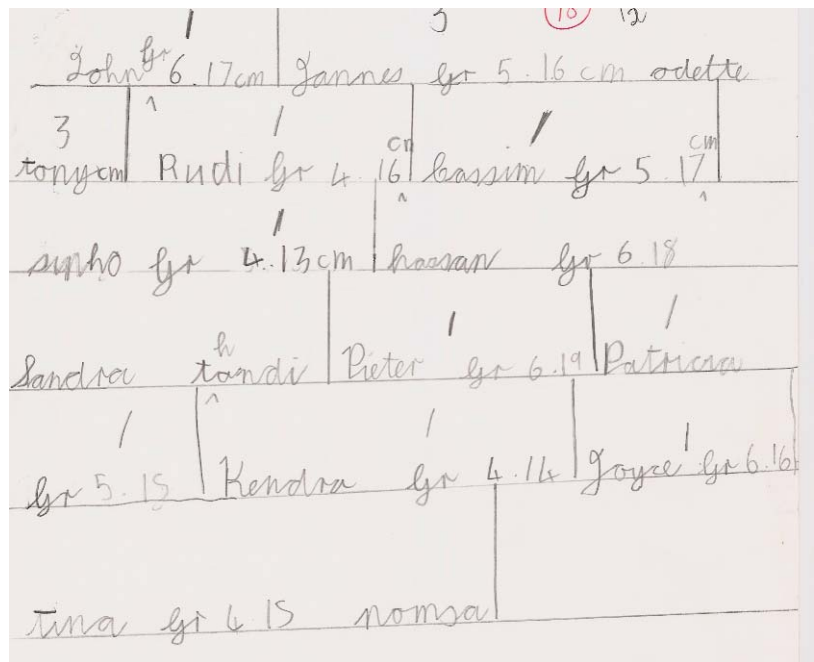 3 10 12
John Gr 6.17cm Jannes Gr 5.16 cm odette
3
tony cm Rudi Gr 4.16 cm Cassim Gr 5.17 cm
sinho Gr 4.13cm hassan Gr 6.18
Sandra thandi Pieter Gr 6.19 Patricia
Gr 5.15 Kendra Gr 4.14 Joyce Gr 6.16
tina Gr 4.15 nomsa